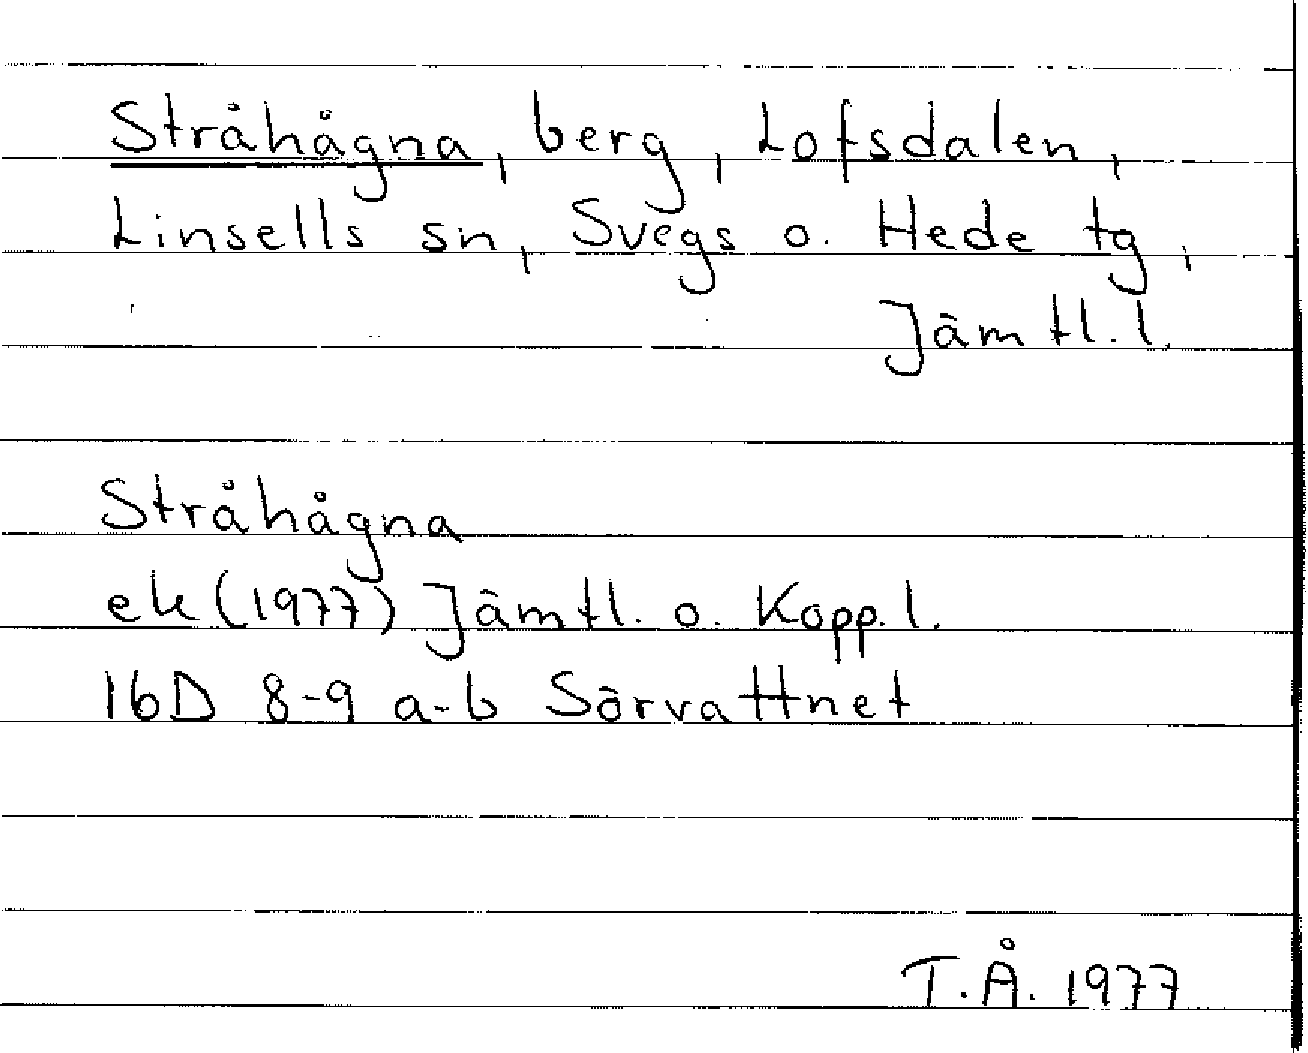 Stråhågna, berg, Lofsdalen,
Linsells sn, Svegs o. Hede tg,
Jämtl. l.
Stråhågna
ek (1977) Jämtl. o. Kopp. l.
16D 8-9 a-b Sörvattnet
T.Å. 1977